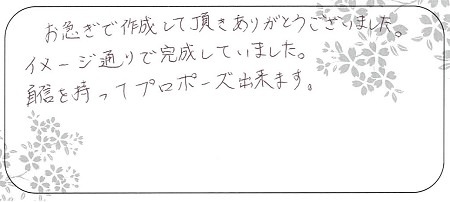 お急ぎで作成して頂きありがとうございました。
イメージ通りで完成していました。
自信を持ってプロポーズ出来ます。